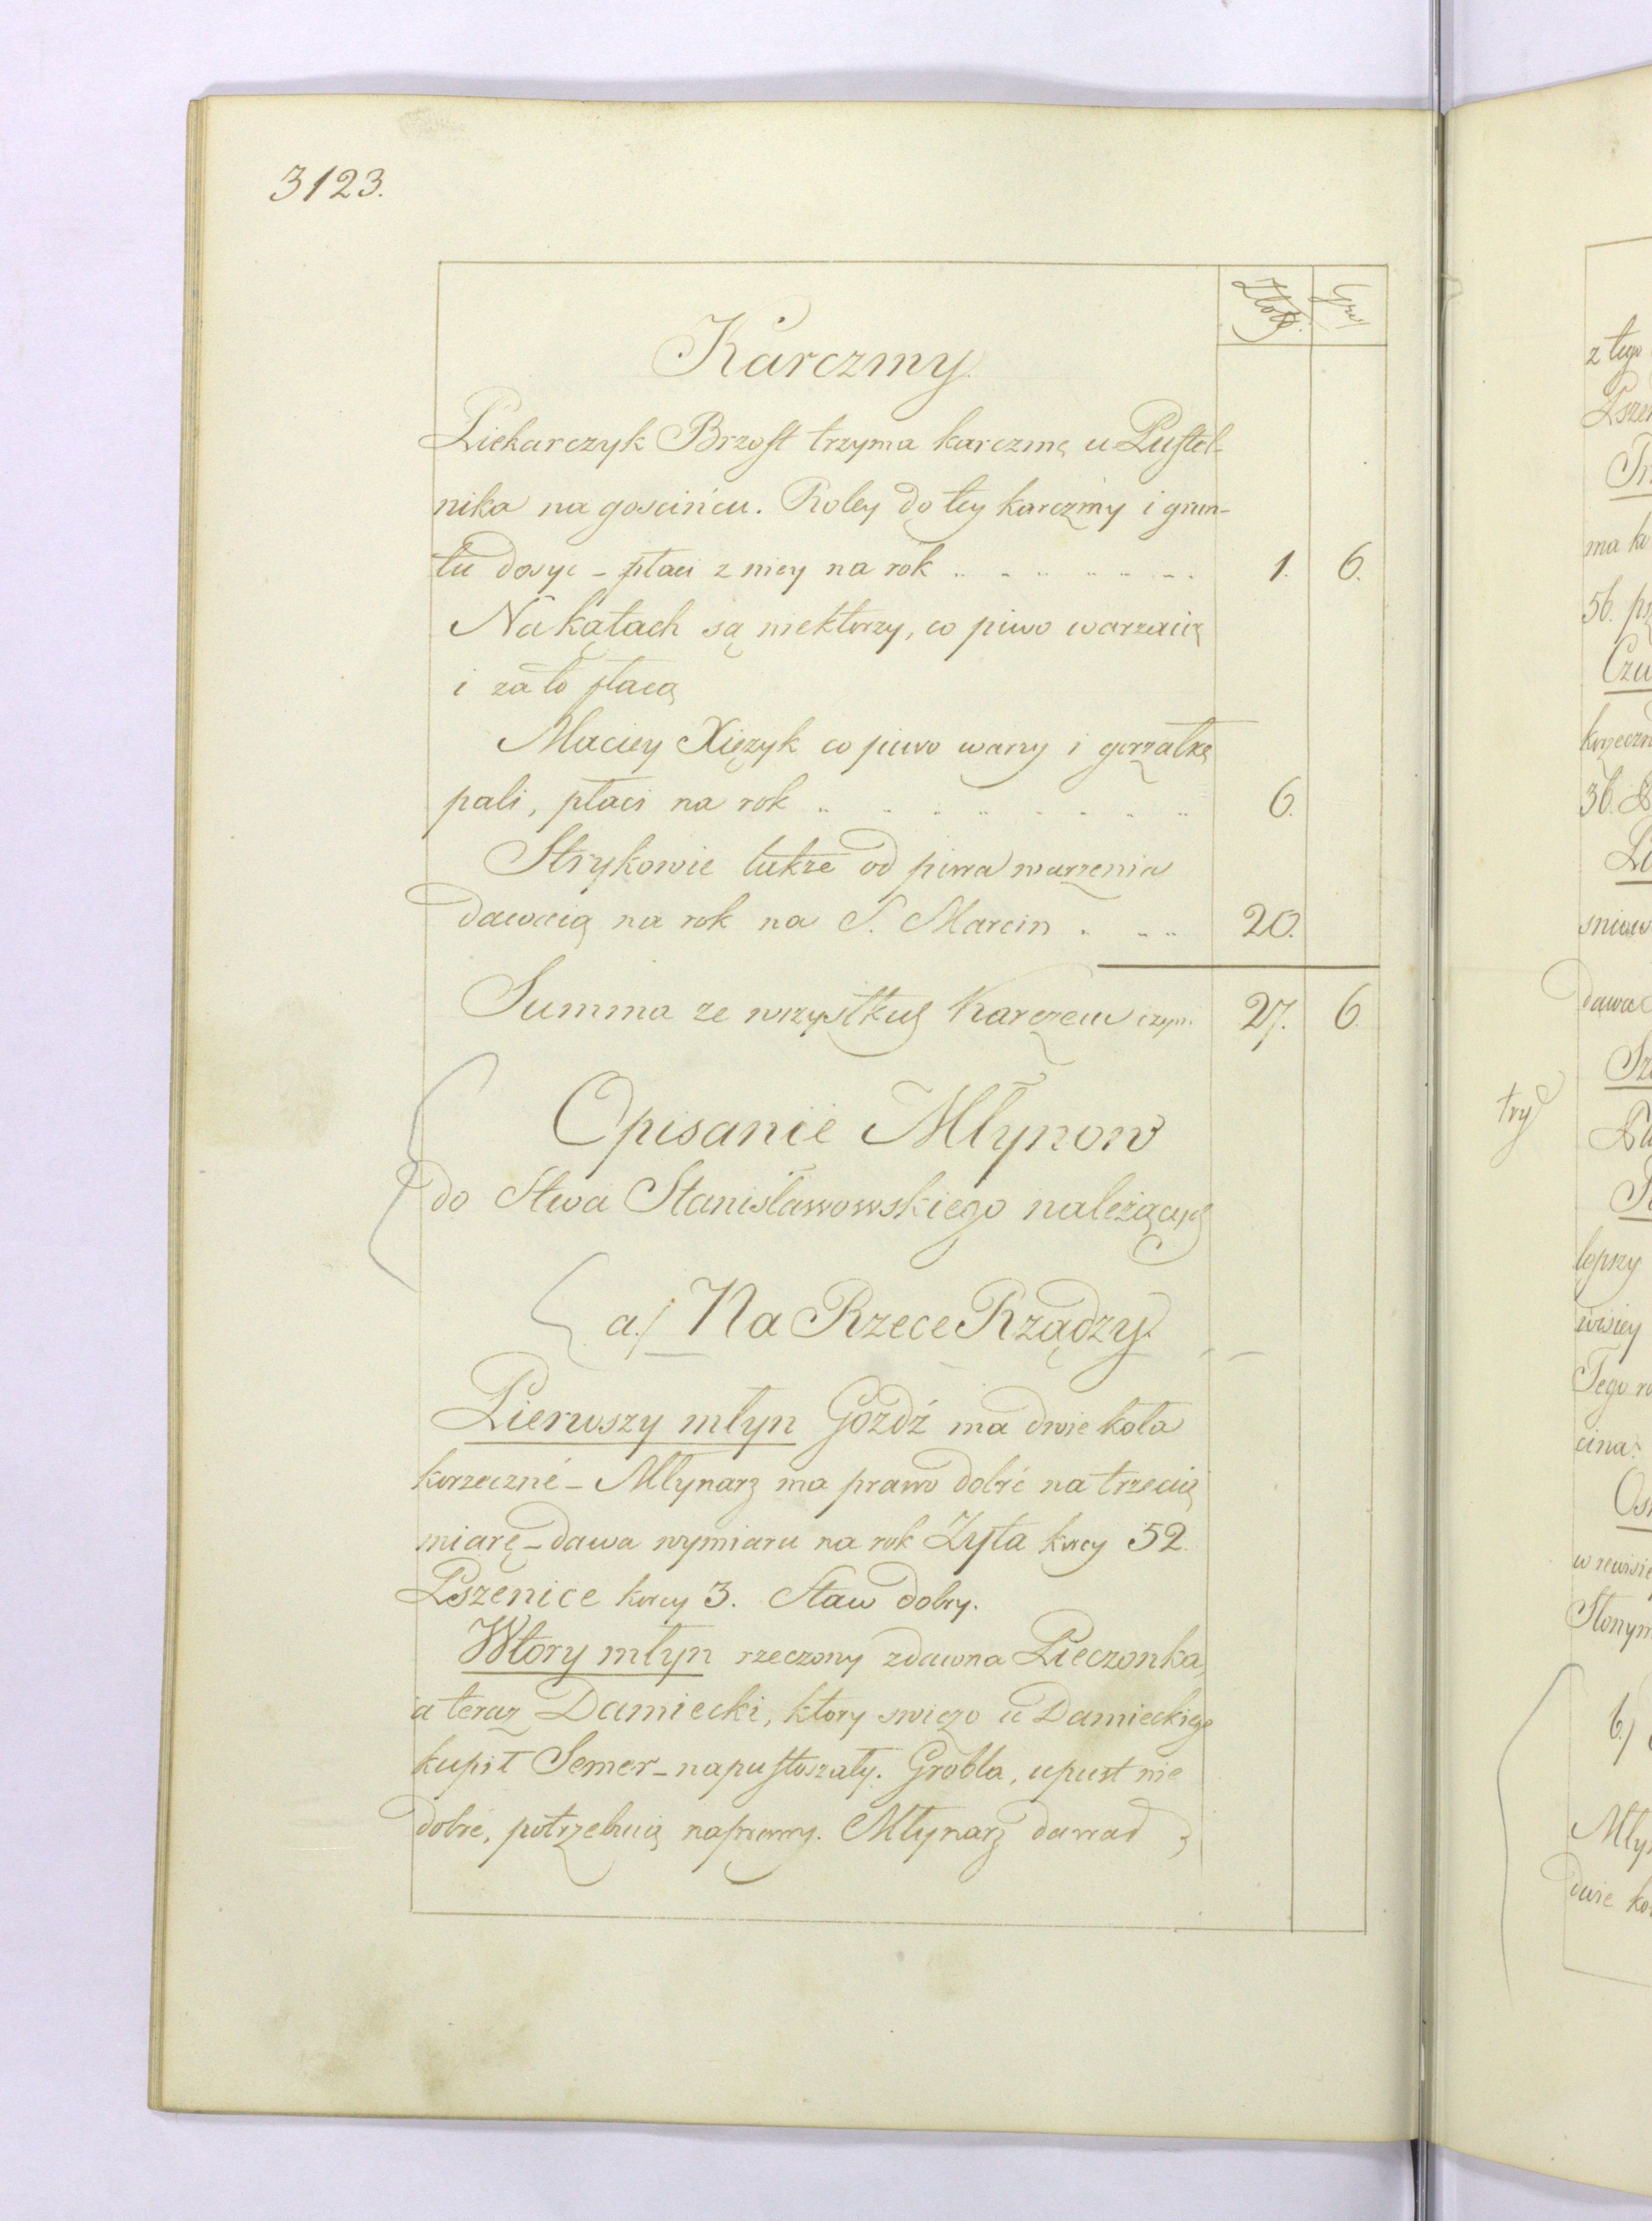 3123.
Złoty. Gr.
Karczmy
Piekarczyk Brzost trzyma karczmę u Pustel-
nika na goscińcu. Roley do tey karczmy i grun-
tu dosyc – płaci z niey na rok 1. 6.
Na kątach są niektorzy, co piwo warzaią
i za to płacą
Maciey Xiężyk co piwo warzy i gorzałkę
pali, płaci na rok 6.
Strykowie także od piwa warzenia
dawaią na rok na S. Marcin 20.
Summa ze wszystkich Karczem czyni. 27. 6
Opisanie Młynow
do Stwa Stanisławowskiego należących
a./ Na Rzece Rządzy.
Pierwszy młyn Gozdź ma dwie koła
korzeczné – Młynarz ma prawo dobré na trzecią
miarę – dawa wymiaru na rok Zyta korcy 52.
Pszenice korcy 3. Staw dobry.
Wtory młyn rzeczony zdawna Pieczonka,
a teraz Damiecki, ktory swiezo u Damieckiego
kupił Semer – napustoszały. Grobla, upust nie
dobré, potrzebuią naprawy. Młynarz dawał z
z tego
ma ko
56.
36.
dawa
try
lepszy
Tego ro
cina.
b./
dwie ko